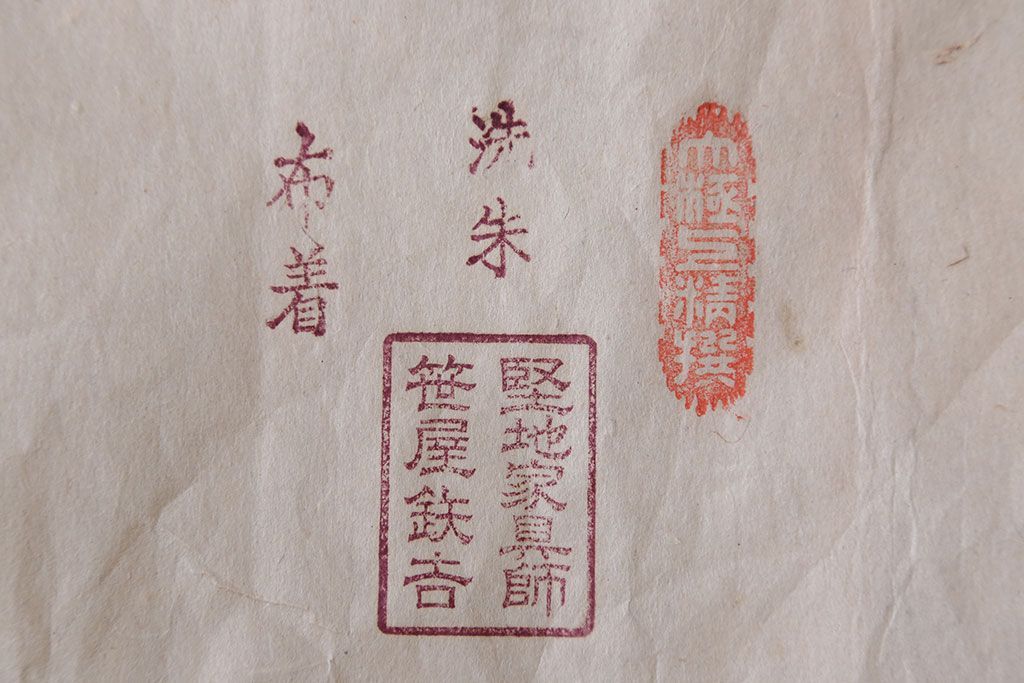 極上精撰
洗朱
布着
堅地家具師
笹屋鉄吉